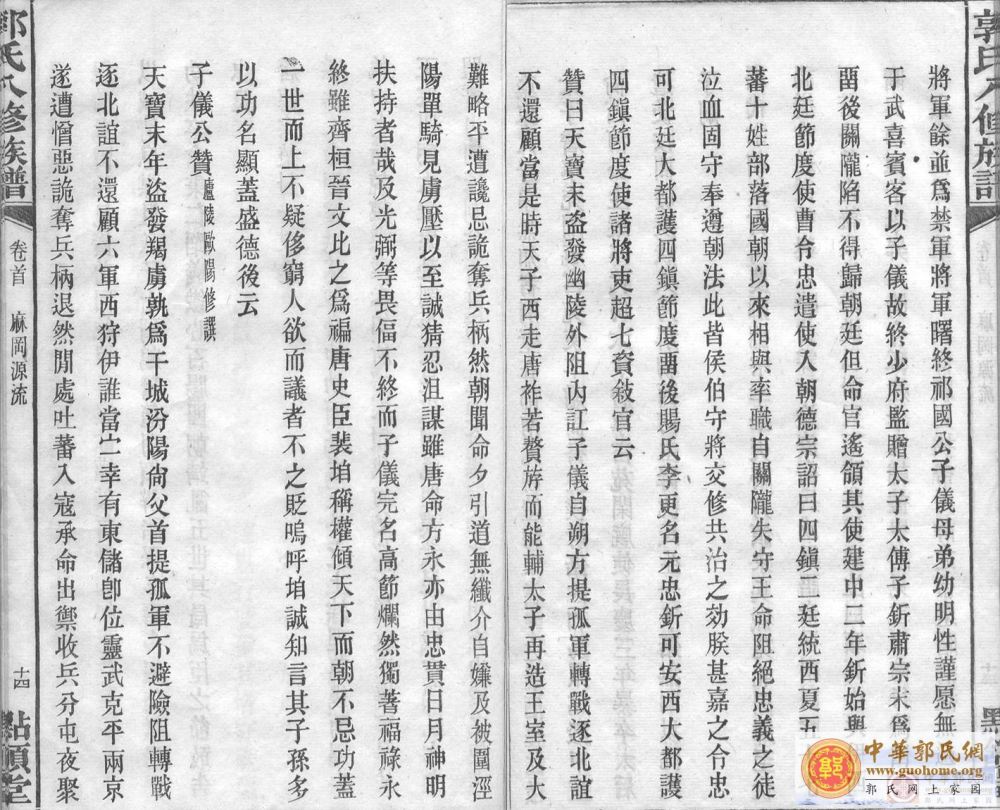 郭氏八修族譜
將軍餘並爲禁軍將軍曙終祁國公子儀母弟幼明性謹愿無
于武喜賓客以子儀故終少府監贈太子太傅子釿肅宗末爲
畱後關隴陷不得歸朝廷但命官遙領其使建中三年釿始與
北廷節度使曹令忠遣使入朝德宗詔曰四鎮二廷統西夏五
蕃十姓部落國朝以來相與率職自關隴失守王命阻絕忠義之徒
泣血固守奉遵朝法此皆侯伯守將交修共治之効朕甚嘉之令忠
可北廷大都護四鎮節度畱後賜氏李更名元忠釿可安西大都護
四鎮節度使諸將吏超七資敘官云
贊曰天寶末盗發幽陵外阻內訌子儀自朔方提孤軍轉戰逐北誼
不還顧當是時天子西走唐祚若贅斿而能輔太子再造王室及大
難略平遭讒忌詭奪兵柄然朝聞命夕引道無纖介自嫌及被圍涇
陽單騎見虜壓以至誠猜忍沮謀雖唐命方永亦由忠貫日月神明
扶持者哉及光弼等畏偪不終而子儀完名高節爛然獨著福祿永
終雖齊桓晉文比之爲褊唐史臣裴垍稱權傾天下而朝不忌功蓋
一世而上不疑侈窮人欲而議者不之貶嗚呼垍誠知言其子孫多
以功名顯蓋盛德後云
子儀公贊 廬陵歐陽修譔
天寶末年盜發羯虜孰爲干城汾陽尙父首提孤軍不避險阻轉戰
逐北誼不還顧六軍西狩伊誰當亡幸有東儲卽位靈武克平兩京
遂遭憎惡詭奪兵柄退然閒處吐蕃入寇承命出禦收兵分屯夜聚
郭氏八修族譜
卷首 麻岡源流
十四
點頷堂
中華郭氏網
www.guohome.org
郭氏網上家園